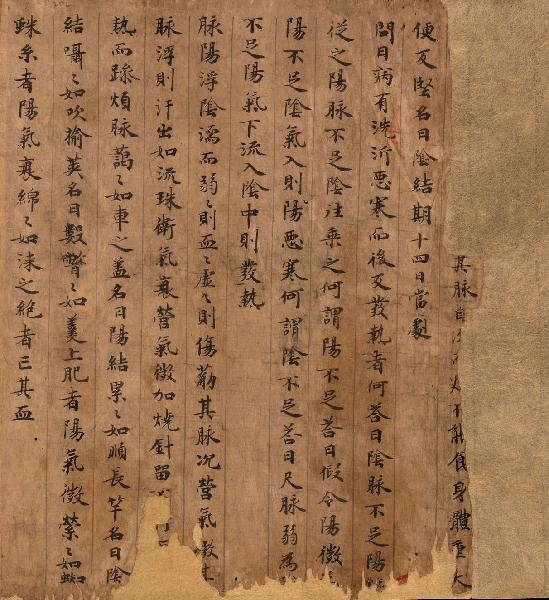 其脉自 不能食身體重大
便反堅名曰陰結期十四日當劇
問曰病有洗沂惡寒而後反發熱者何荅曰陰脉不足陽
從之陽脉不足陰往乗之何謂陽不足荅曰假令陽微
陽不足陰氣入則陽惡寒何謂陰不足荅曰尺脉弱為
不足陽氣下流入陰中則發熱
脉陽浮陰濡而弱〻則血〻虛〻則傷荕其脉況營氣微其
脉浮則汗出如流珠衛氣衰營氣微加燒針留
熱而躁煩脉藹〻如車之蓋名曰陽結累〻如順長竿名曰陰
結囁〻如吹榆莢名曰數瞥〻如羹上肥者陽氣微縈〻如蜘
蛛糸者陽氣衰綿〻如漆之絶者亡其血